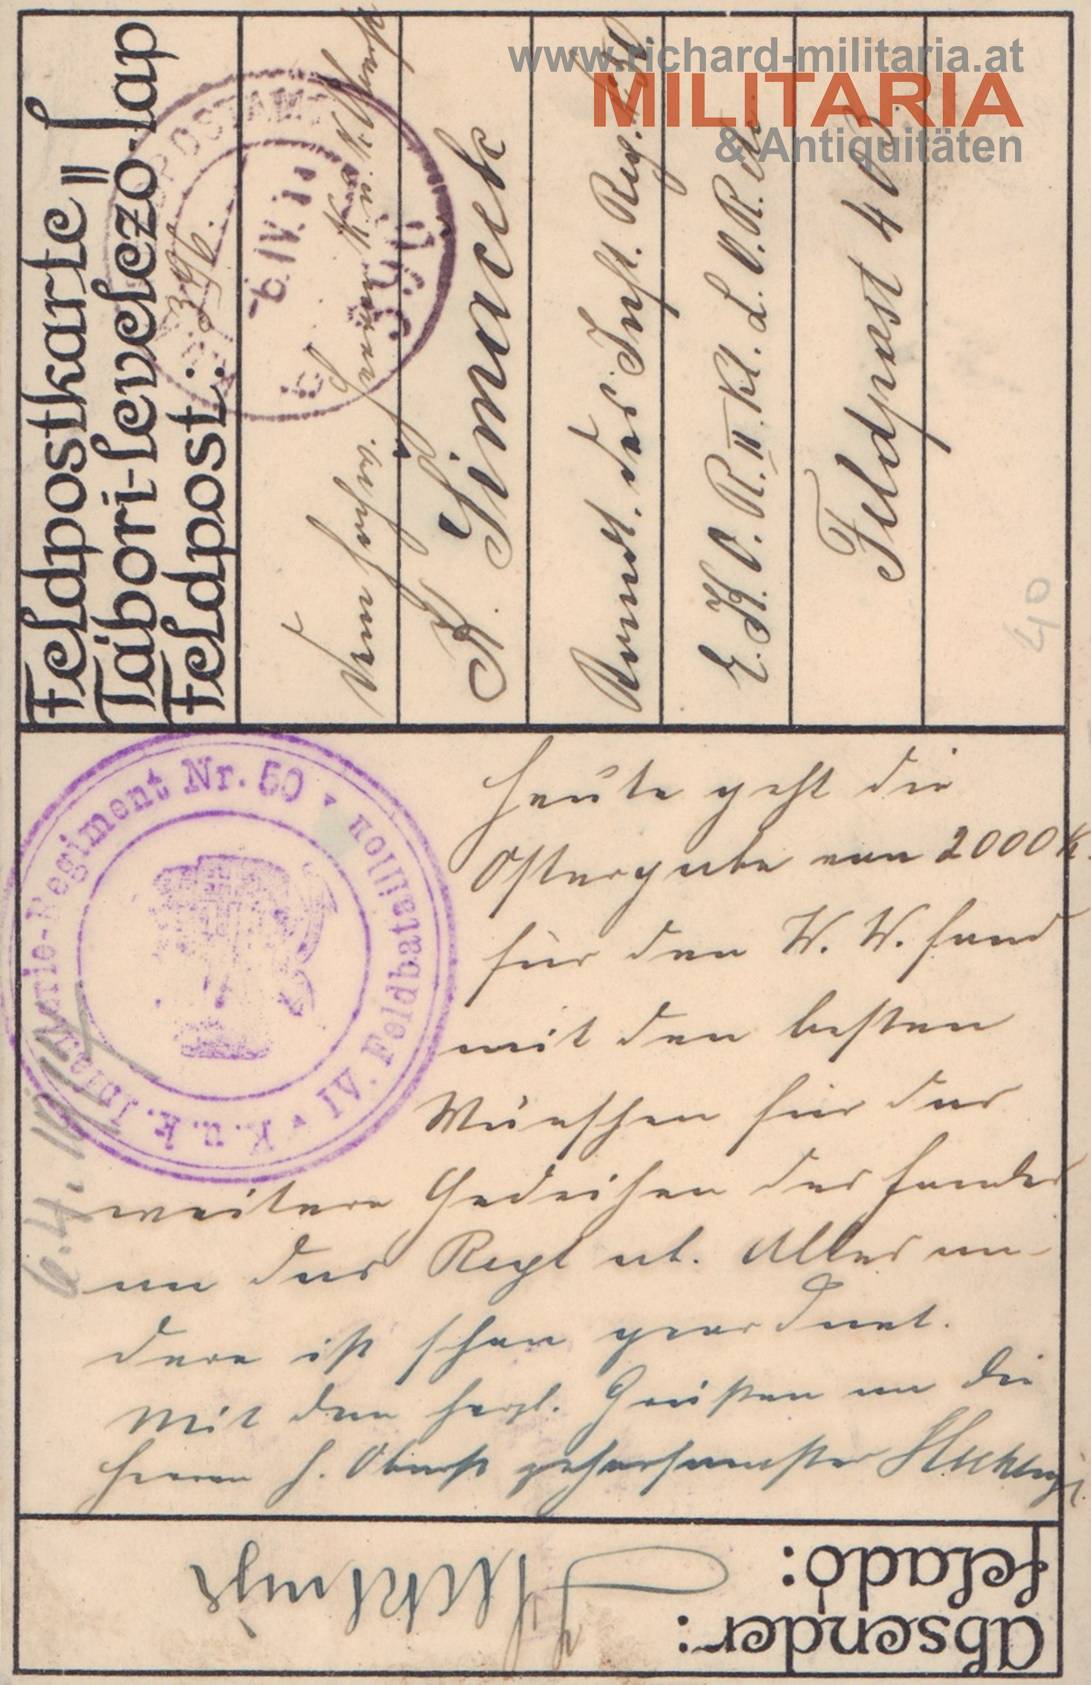 www.richard-militaria.at
MILITARIA
& Antiquitäten
Feldpostkarte =
Tábori-levelezö-lap
Feldpost:
Seiner Hochwohlgeboren
P. Simacek
Kommdt. des Inft. Reg.
E.K.O.R. II. Kl. L.O.R. etc.
Feldpost 403
40
K.u.k. Infanterie-Regiment Nr. 50
IV. Feldbataillon
6.IV.
heute geht die
Ostergabe von 2000 K.
für den W. W. fond
mit den besten
Wünschen für das
weitere Gedeihen des fondes
an das Regt ab. Alles an-
dere ist schon geordnet.
Mit den herzl. Grüßen an die
Herren H. Oberst gehorsamster
Absender:
feladó: